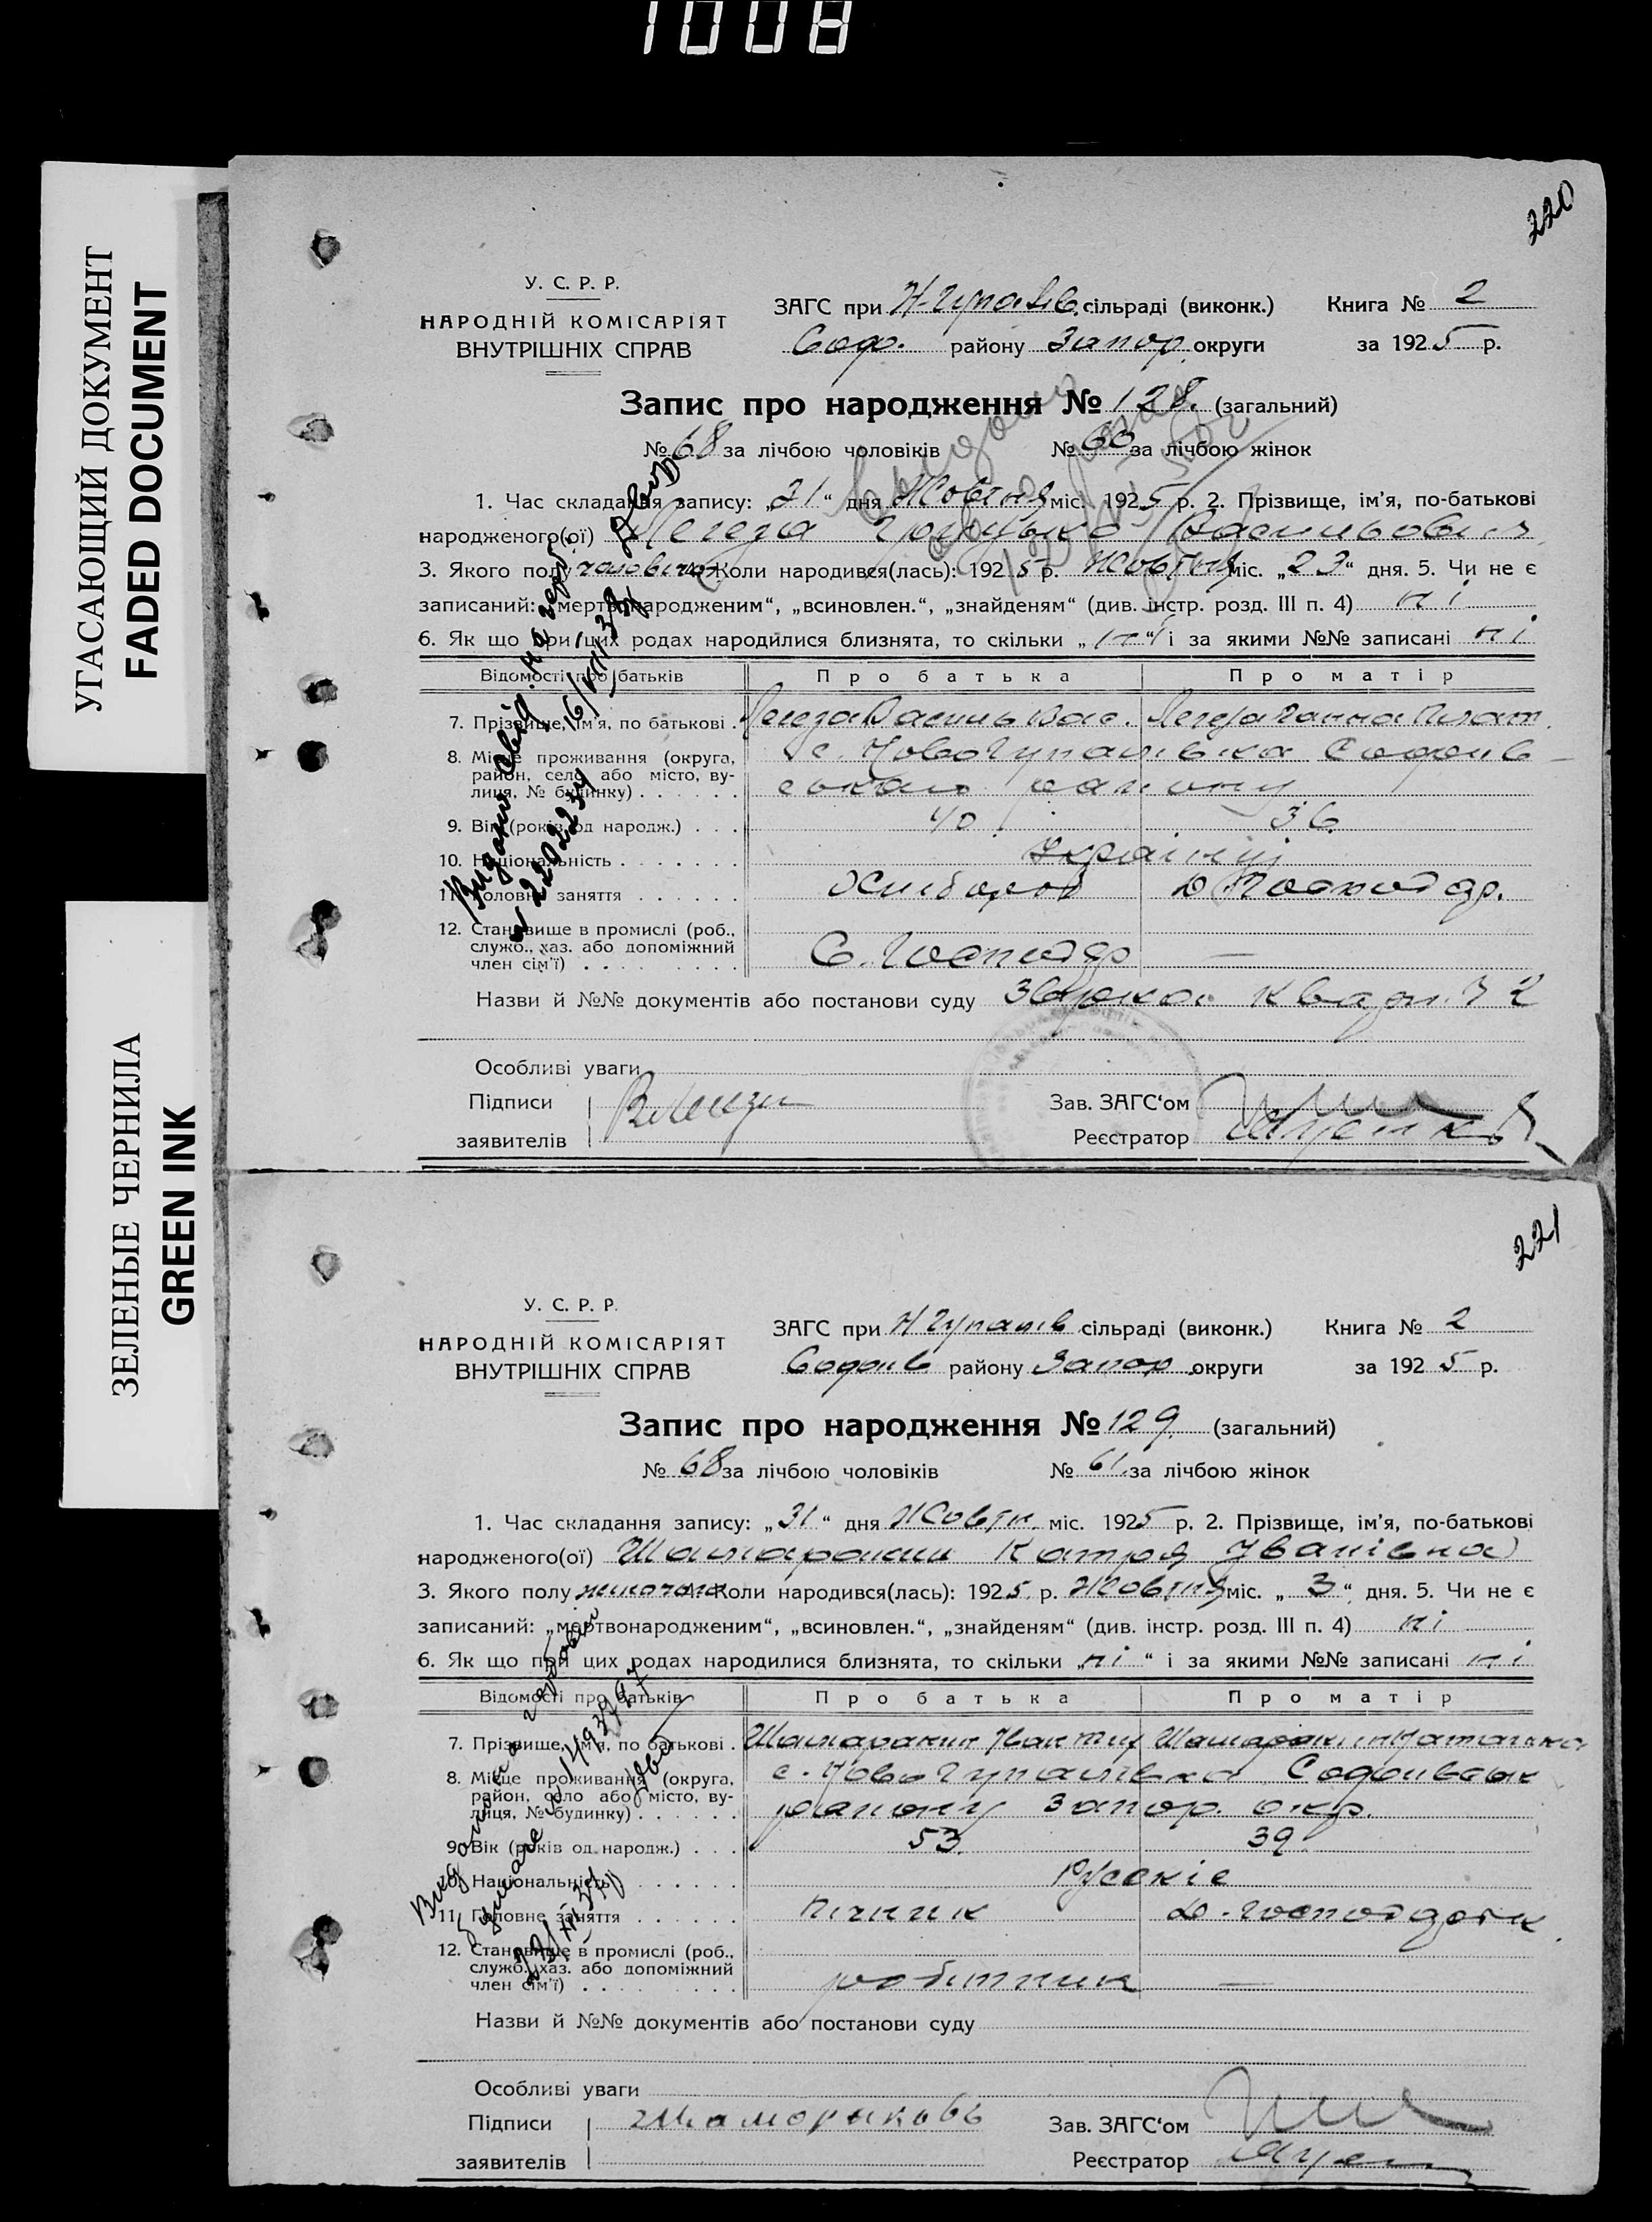 1008
УГАСАЮЩИЙ ДОКУМЕНТ
FADED DOCUMENT
ЗЕЛЕНЫЕ ЧЕРНИЛА
GREEN INK
220
У. С. Р. Р.
НАРОДНІЙ КОМІСАРІЯТ
ВНУТРІШНІХ СПРАВ
ЗАГС при Н-Гупалів. сільраді (виконк.) Книга № 2
Соф. району Запор. округи за 1925 р.
Запис про народження № 128. (загальний)
№ 68 за лічбою чоловіків № 60 за лічбою жінок
1. Час складання запису: „31“ дня Жовтня міс. 1925 р. 2. Прізвище, ім’я, по-батькові
народженого(ої) Легеза Васильович
3. Якого полу чоловічого Коли народився(лась): 1925 р. Жовтня міс. „23“ дня. 5. Чи не є
записаний: „мертвонародженим“, „всиновлен.“, „знайденям“ (див. інстр. розд. III п. 4) ні
6. Як що при цих родах народилися близнята, то скільки „ні“ і за якими №№ записані ні
Відомості про батьків Про батька Про матір
7. Прізвище, ім’я, по батькові . Легеза Василь Вас. Легеза Ганна Плат.
8. Місце проживання (округа, с. Ново Гупалівка Софіїв-
район, село або місто, ву-
лиця, № будинку) . . . . . . ського району
9. Вік (років од народж.) . . . 40 36
10. Національність . . . . . . . Українці
11. Головне заняття . . . . . . Хлібороб Д Господар.
12. Становище в промислі (роб.,
служб., хаз. або допоміжний
член сім’ї) . . . . . . . . . С. Господар —
Назви й №№ документів або постанови суду
Особливі уваги
Підписи В Легеза Зав. ЗАГС‘ом
заявителів Реєстратор
221
У. С. Р. Р.
НАРОДНІЙ КОМІСАРІЯТ
ВНУТРІШНІХ СПРАВ
ЗАГС при Н Гупалів сільраді (виконк.) Книга № 2
Софіїв району Запор. округи за 1925 р.
Запис про народження № 129. (загальний)
№ 68 за лічбою чоловіків № 61 за лічбою жінок
1. Час складання запису: „31“ дня Жовтн. міс. 1925 р. 2. Прізвище, ім’я, по-батькові
народженого(ої) Катря Іванівна
3. Якого полу жіночого Коли народився(лась): 1925 р. Жовтня міс. „3“ дня. 5. Чи не є
записаний: „мертвонародженим“, „всиновлен.“, „знайденям“ (див. інстр. розд. III п. 4) ні
6. Як що при цих родах народилися близнята, то скільки „ні“ і за якими №№ записані ні
Відомості про батьків Про батька Про матір
7. Прізвище, ім’я, по батькові .
8. Місце проживання (округа, с. Ново Гупалівка Софіївськ
район, село або місто, ву-
лиця, № будинку) . . . . . . району Запор. окр.
9. Вік (років од народж.) . . . 53. 39
10. Національність . . . . . . . Русскіе
11. Головне заняття . . . . . . Пічник Д. Господарк
12. Становище в промислі (роб.,
служб., хаз. або допоміжний
член сім’ї) . . . . . . . . . робітник —
Назви й №№ документів або постанови суду
Особливі уваги
Підписи Зав. ЗАГС‘ом
заявителів Реєстратор